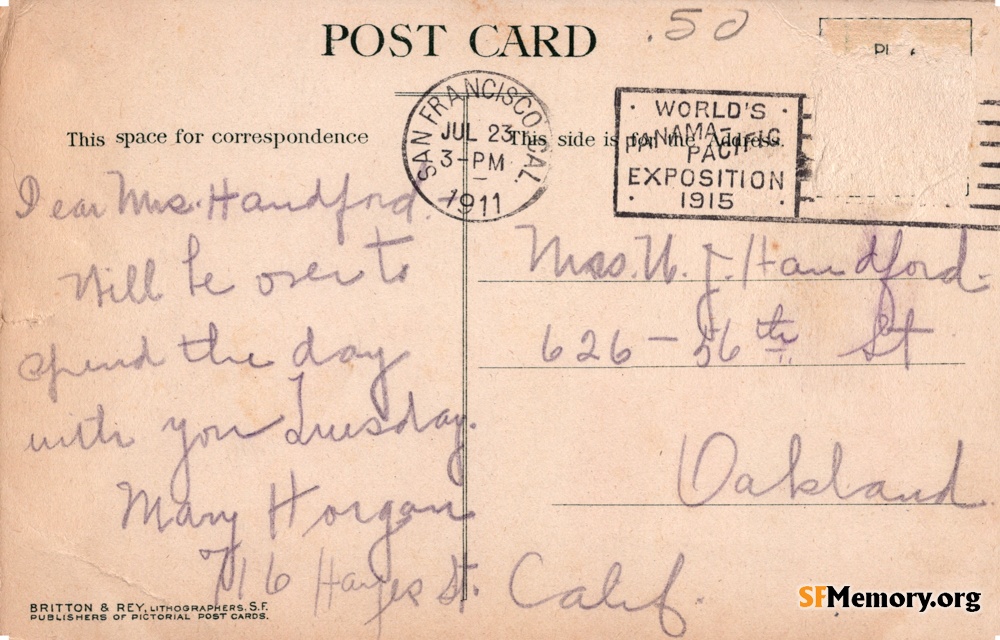 POST CARD
.50
SAN FRANCISCO, CAL.
JUL 23
3-PM
1911
WORLD'S
PANAMA-PACIFIC
EXPOSITION
1915
This space for correspondence
This side is for the Address.
Dear Mrs. Handford. -
Will be over to
spend the day
with you Tuesday.
Mary Horgan
716 Hayes St.
Mrs. W. J. Handford.
626 - 56th St
Oakland
Calif.
BRITTON & REY, LITHOGRAPHERS, S.F.
PUBLISHERS OF PICTORIAL POST CARDS.
SFMemory.org